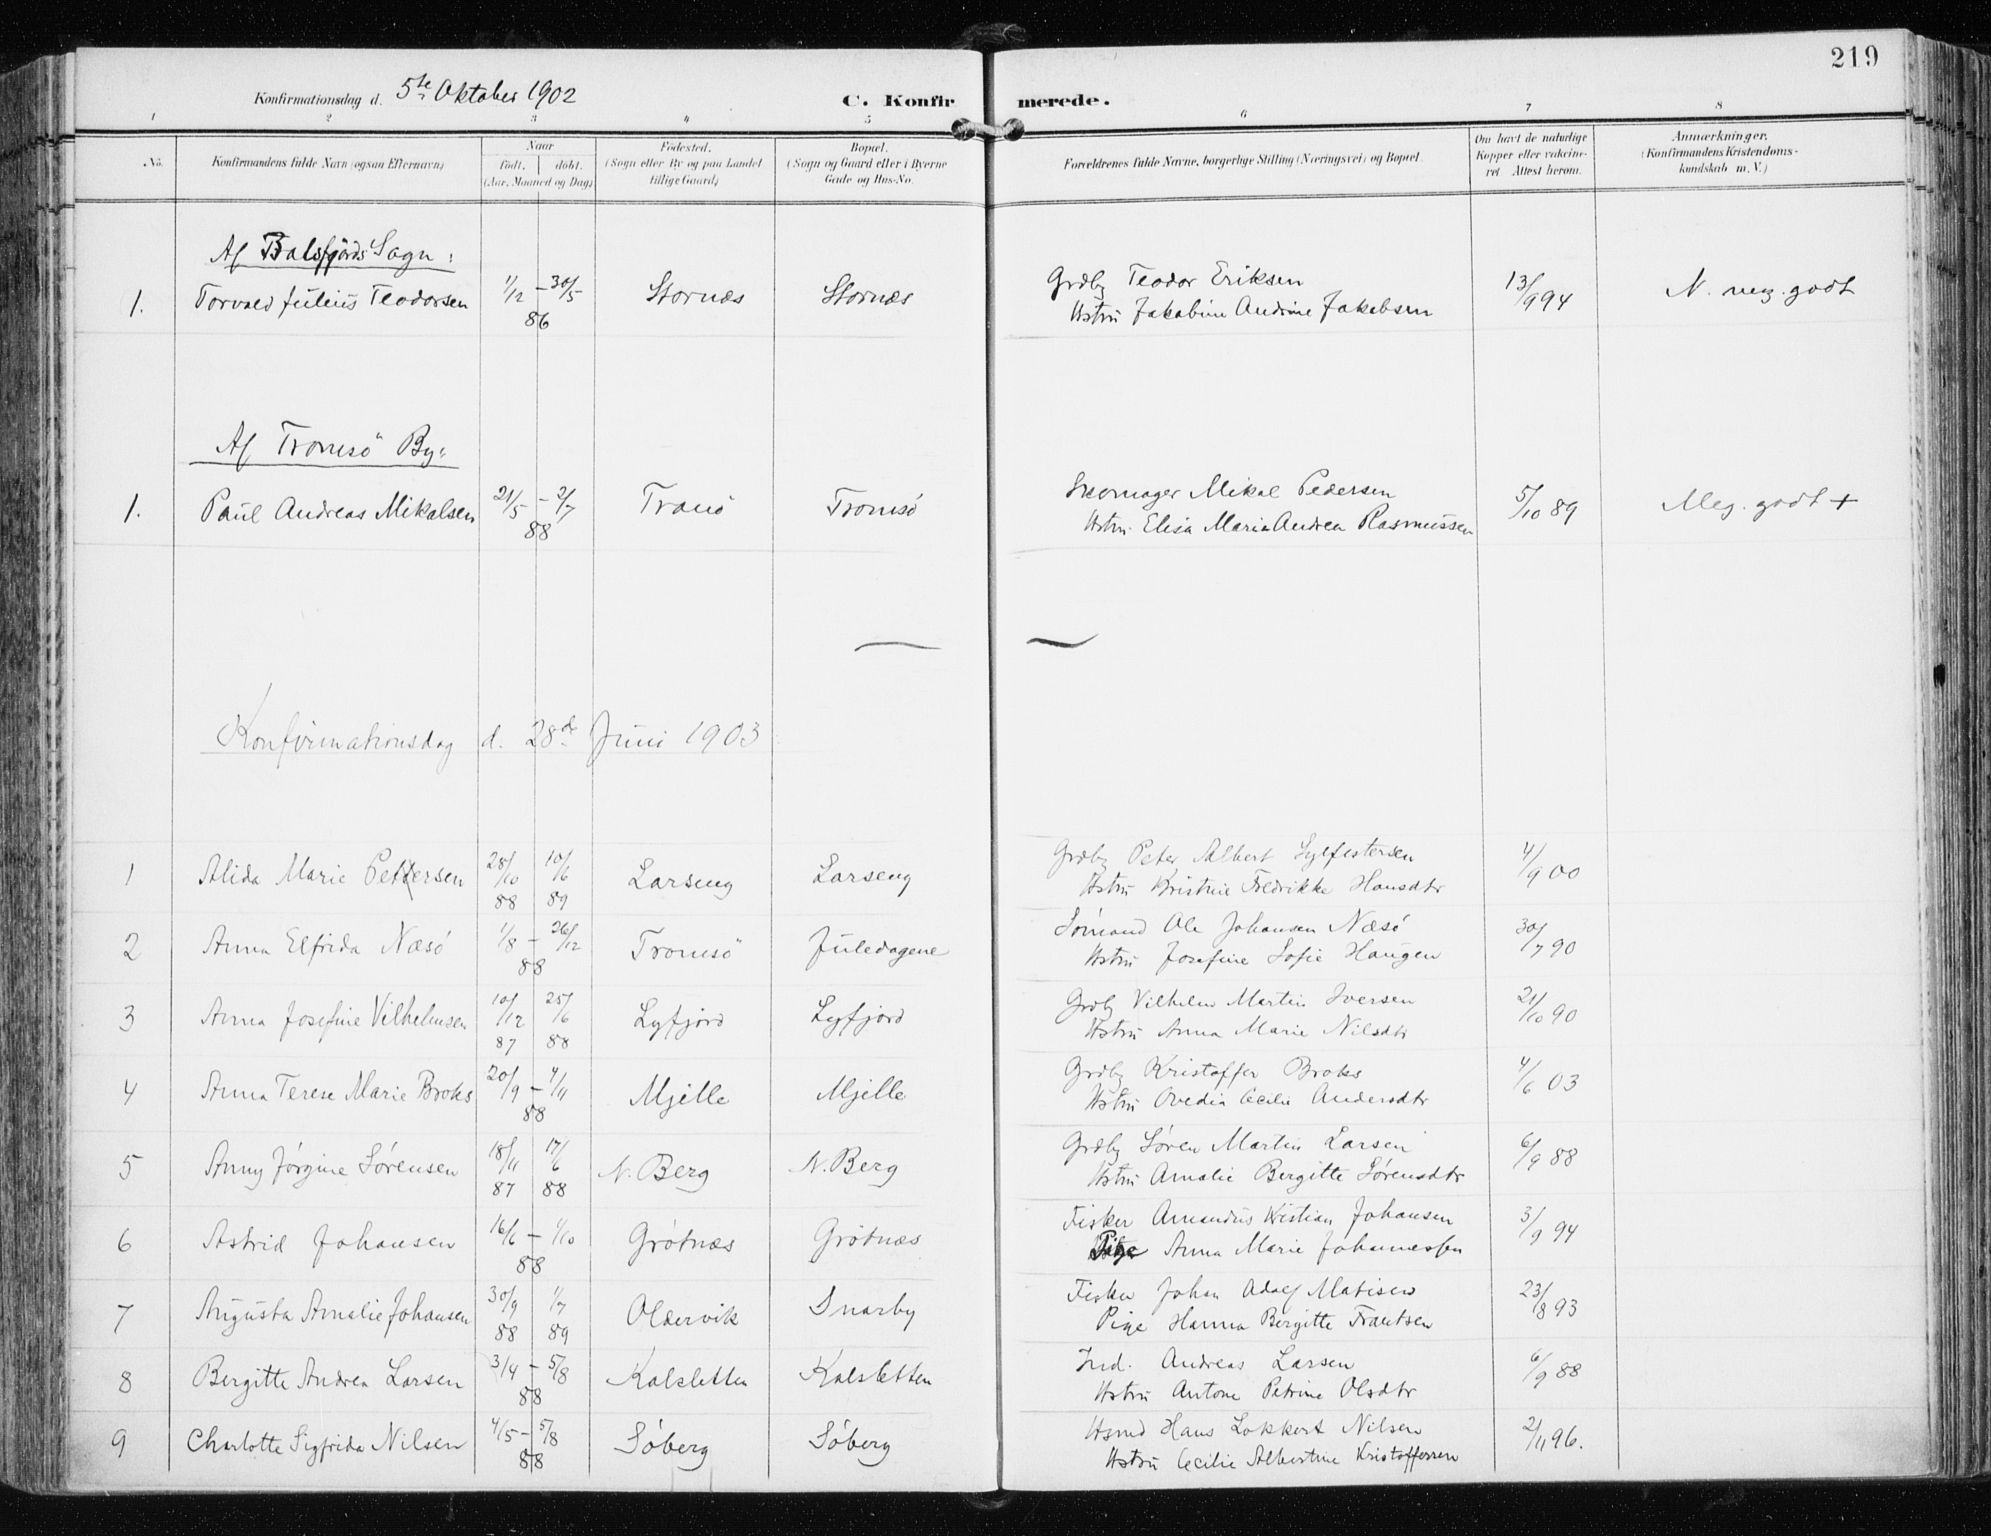 219
Konfirmationsdag d. 5te Oktober 1902
C. Konfirmerede.
1 2 3 4 5 6 7 8
No.
Konfirmandens fulde Navn (ogsaa Efternavn)
Naar
født. døbt.
(Aar, Maaned og Dag)
Fødested.
(Sogn eller By og paa Landet
tillige Gaard)
Bopæl.
(Sogn og Gaard eller i Byerne
Gade og Hus-No.
Forældrenes fulde Navne, borgerlige Stilling (Næringsvei) og Bopæl.
Om havt de naturlige
Kopper eller vakcine-
ret Attest herom.
Anmærkninger.
(Konfirmandens Kristendoms-
kundskab m. V.)
Af Balsfjords Sogn:
1. Torvald Julius Teodorsen 1/12 – 30/5 86 Stornæs Stornæs Grdbr Teodor Eriksen 13/9 94 N. meg. godt
Hstru Jakobine Andrine Jakobsen
Af Tromsö By:
1. Paul Andreas Mikalsen 21/5 – 2/7 88 Tranö Tromsö Skomager Mikal Pedersen 5/10 89 Meg. godt +
Hstru Elisa Maria Andrea Rasmussen
Konfirmationsdag d. 28de Juni 1903
1 Alida Marie Pettersen 28/10 88 10/6 89 Larseng Larseng Grdbr Peter Albert Sylfestersen 4/9 00
Hstru Kristine Fredrikke Hansdtr
2 Anna Elfrida Næsö 1/8 – 26/12 88 Tromsö Juledagene Sömand Ole Johansen Næsö 30/7 90
Hstru Josefine Sofie Haugen
3 Anna Josefine Vilhelmsen 10/12 87 25/6 88 Lyfjord Lyfjord Grdbr Vilhelm Martin Iversen 21/10 90
Hstru Anna Marie Nilsdtr
4 Anna Terese Marie Broks 20/9 – 4/11 88 Mjelle Mjelle Grdbr Kristoffer Broks 4/6 03
Hstru Ovedia Cecilie Andersdtr
5 Anny Jörgine Sörensen 18/11 87 17/6 88 N. Berg N. Berg Grdbr Sören Martin Larsen 6/9 88
Hstru Amalie Bergitte Sörensdtr
6 Astrid Johansen 16/6 – 1/10 88 Grötnæs Grötnæs Fisker Amandus Kristian Johansen 3/9 94
Pige Anna Marie Johannessen
7 Augusta Amalie Johansen 30/9 88 1/7 89 Oldervik Snarby Fisker Johan Adolf Matisen 23/8 93
Pige Hanna Bergitte Frantsen
8 Bergitte Andrea Larsen 3/4 – 5/8 88 Kalsletten Kalsletten Ind. Andreas Larsen 6/9 88
Hstru Antone Petrine Olsdtr
9 Charlotte Sigfrida Nilsen 4/5 – 5/8 88 Söberg Söberg Hsmd Hans Lokkert Nilsen 2/11 96.
Hstru Cecilie Albertine Kristoffersen